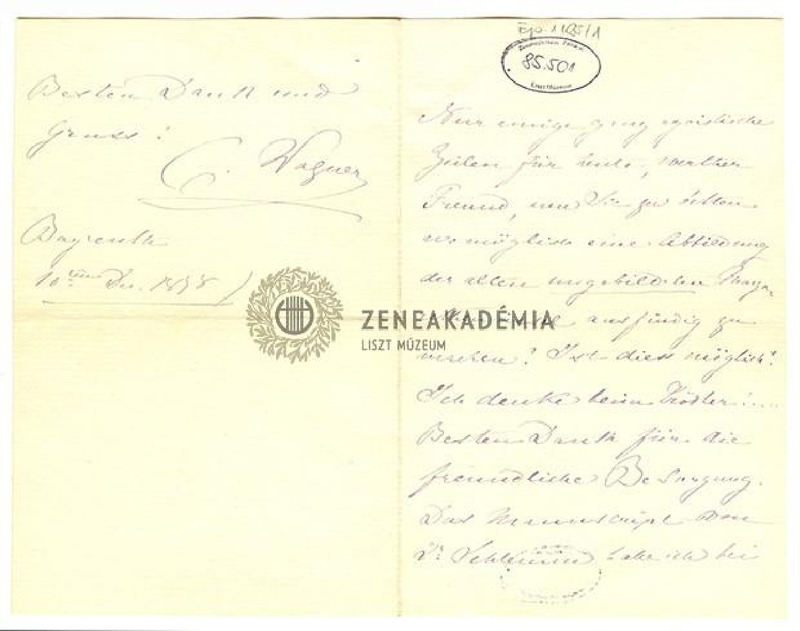 Besten Dank und
Gruss!
C. Wagner
Bayreuth
10ten Dec. 1878
Ep. 1185/1
85.501
Nur einige ganz egoistische
Zeilen für heute, werther
Freund, um Sie zu bitten
wo möglich eine Abbildung
der alten ungebildeten
ausfindig zu
machen? Ist diess möglich?
Ich denke beim Trödler!....
Besten Dank für die
freundliche Besorgung.
Das Manuscript von
Dr habe ich bei
ZENEAKADÉMIA
LISZT MÚZEUM